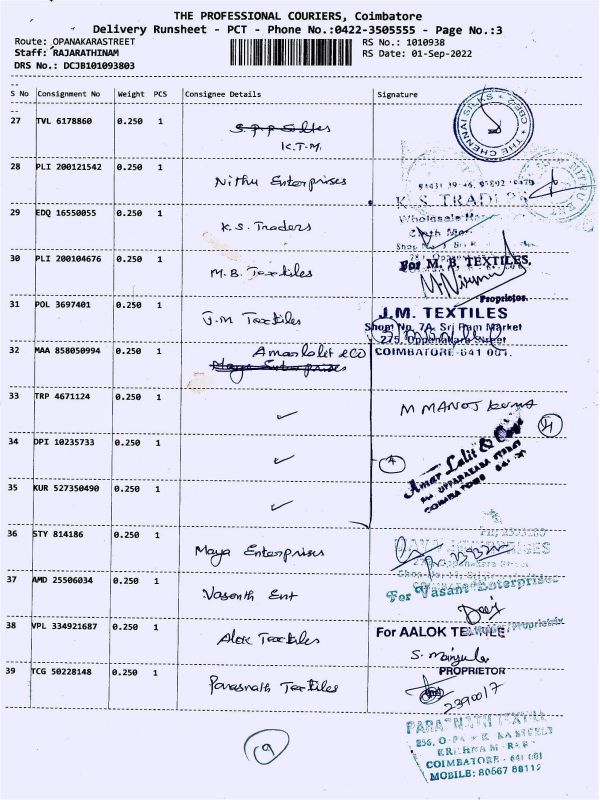 THE PROFESSIONAL COURIERS, Coimbatore
Delivery Runsheet - PCT - Phone No.:0422-3505555 - Page No.:3
Route: OPANAKARASTREET
RS No.: 1010938
Staff: RAJARATHINAM
RS Date: 01-Sep-2022
DRS No.: DCJB101093803
S No Consignment No Weight PCS Consignee Details Signature
27 TVL 6178860 0.250 1
K.T.M.
THE CHENNAI SILKS CBE-2
28 PLI 200121542 0.250 1 Nithu Enterprises
29 EDQ 16550055 0.250 1 K.S. Traders
K. S. TRADERS
Wholesale
30 PLI 200104676 0.250 1 M.B. Textiles
For M. B. TEXTILES,
Proprietor.
31 POL 3697401 0.250 1 J.M Textiles
J.M. TEXTILES
Shop No. 7A, Sri Ram Market
275, Oppanakara Street
COIMBATORE-641 001.
32 MAA 858050994 0.250 1 Amarlalit & Co
Maya Enterprises
33 TRP 4671124 0.250 1 ✓ M MANOJ Kumar
34 DPI 10235733 0.250 1 ✓ 4
Amar Lalit & Coy
35 KUR 527350490 0.250 1 ✓
36 STY 814186 0.250 1 Maya Enterprises
37 AMD 25506034 0.250 1 Vasanth Ent
For Vasant Enterprises
38 VPL 334921687 0.250 1 Alok Textiles
For AALOK TEXTILE
S. Manjula
PROPRIETOR
39 TCG 50228148 0.250 1 Parasnath Textiles
2390017
PARASNATH TEXTILE
COIMBATORE - 641 001
MOBILE: 80567 88112
9